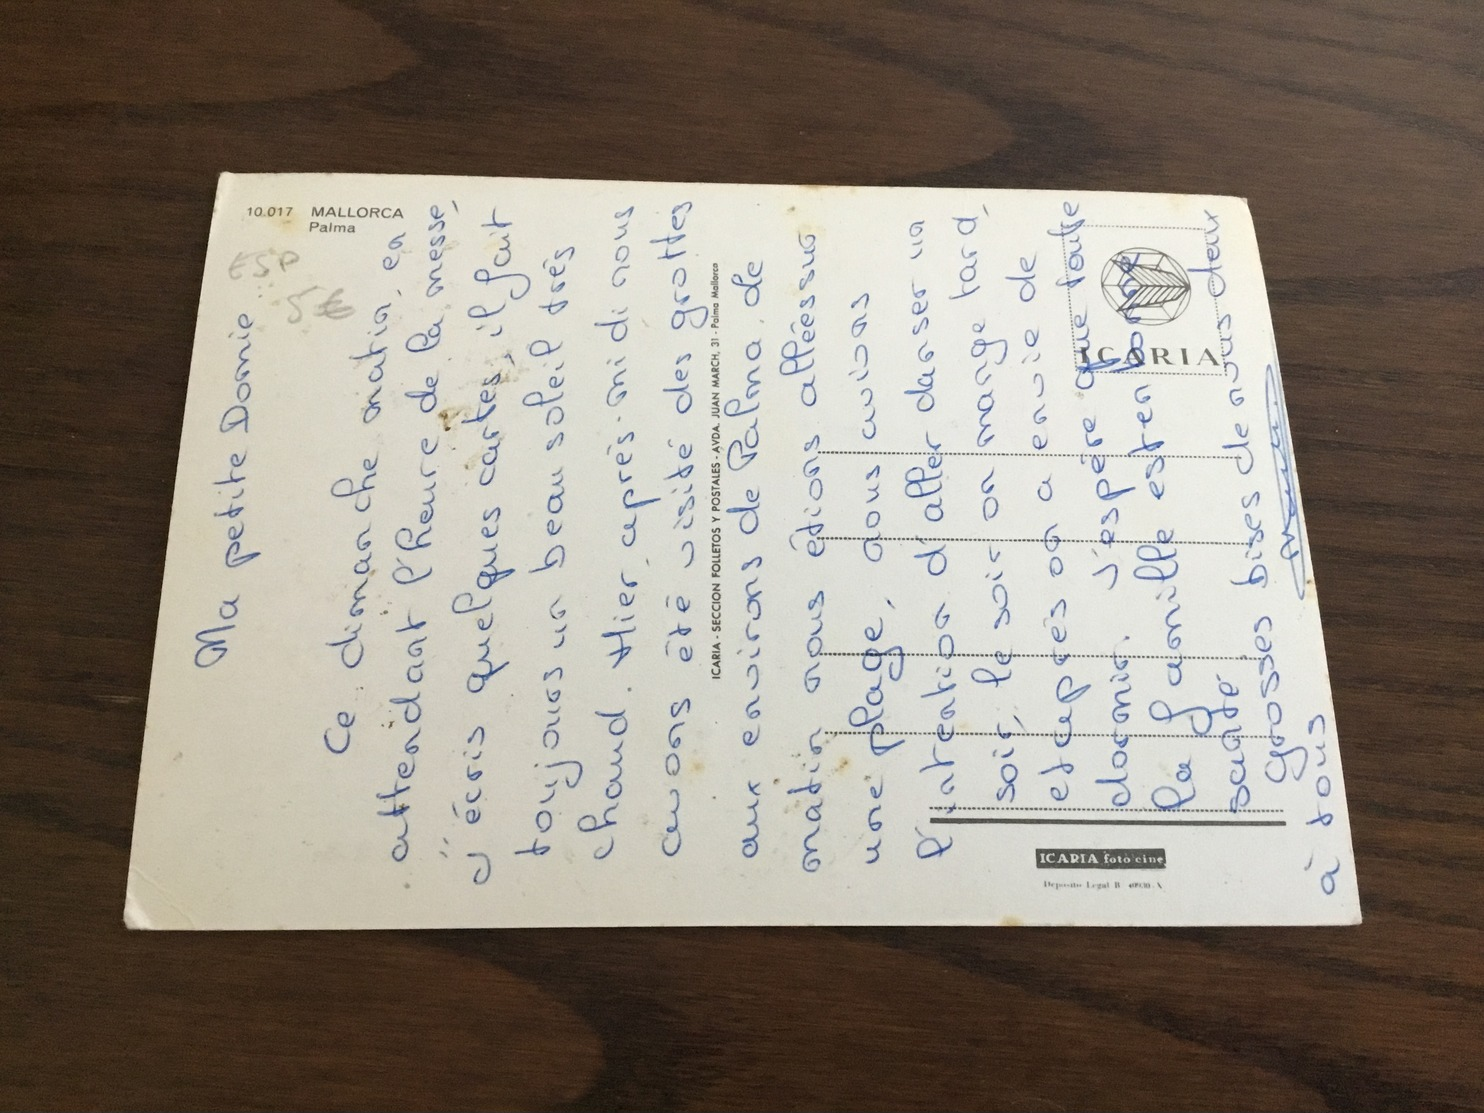 10.017 MALLORCA
Palma
ESP
5€
Ma petite Domie
Ce dimanche matin, en
attendant l'heure de la messe,
j'écris quelques cartes, il fait
toujours un beau soleil très
chaud. Hier après-midi nous
avons été visité des grottes
aux environs de Palma, de
matin nous étions allées sur
une plage, nous avions
l'intention d'aller danser un
soir, le soir on mange tard,
et après on a envie de
dormir. J'espère que toute
la famille est en bonne
santé.
Grosses bises de nous deux
à tous
ICARIA - SECCION FOLLETOS Y POSTALES - AVDA. JUAN MARCH, 31 - Palma Mallorca
ICARIA
ICARIA foto cine
Deposito Legal B